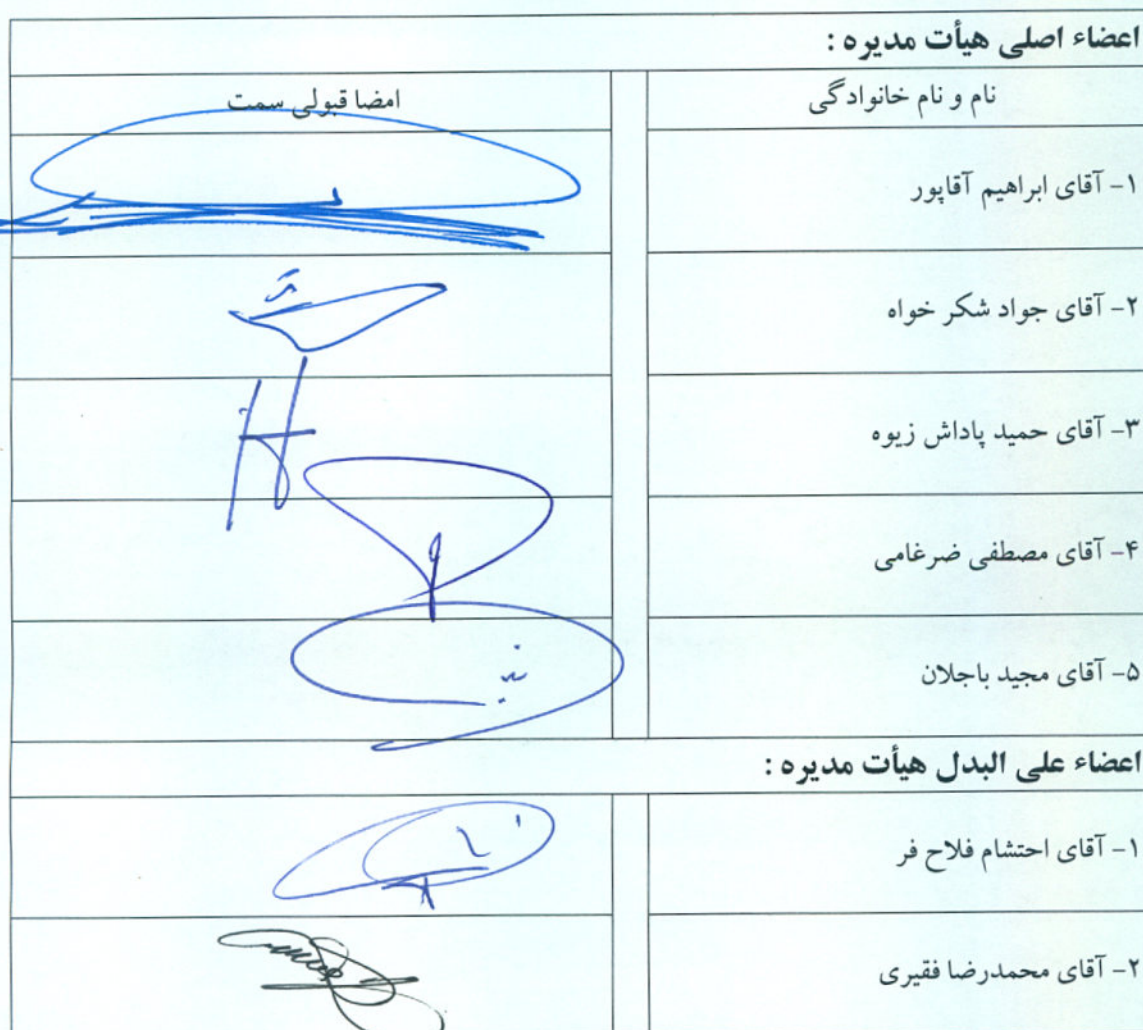 اعضاء اصلی هیأت مدیره :
نام و نام خانوادگی
امضا قبولی سمت
۱- آقای ابراهیم آقاپور
۲- آقای جواد شکر خواه
۳- آقای حمید پاداش زیوه
۴- آقای مصطفی ضرغامی
۵- آقای مجید باجلان
اعضاء علی البدل هیأت مدیره :
۱- آقای احتشام فلاح فر
۲- آقای محمدرضا فقیری